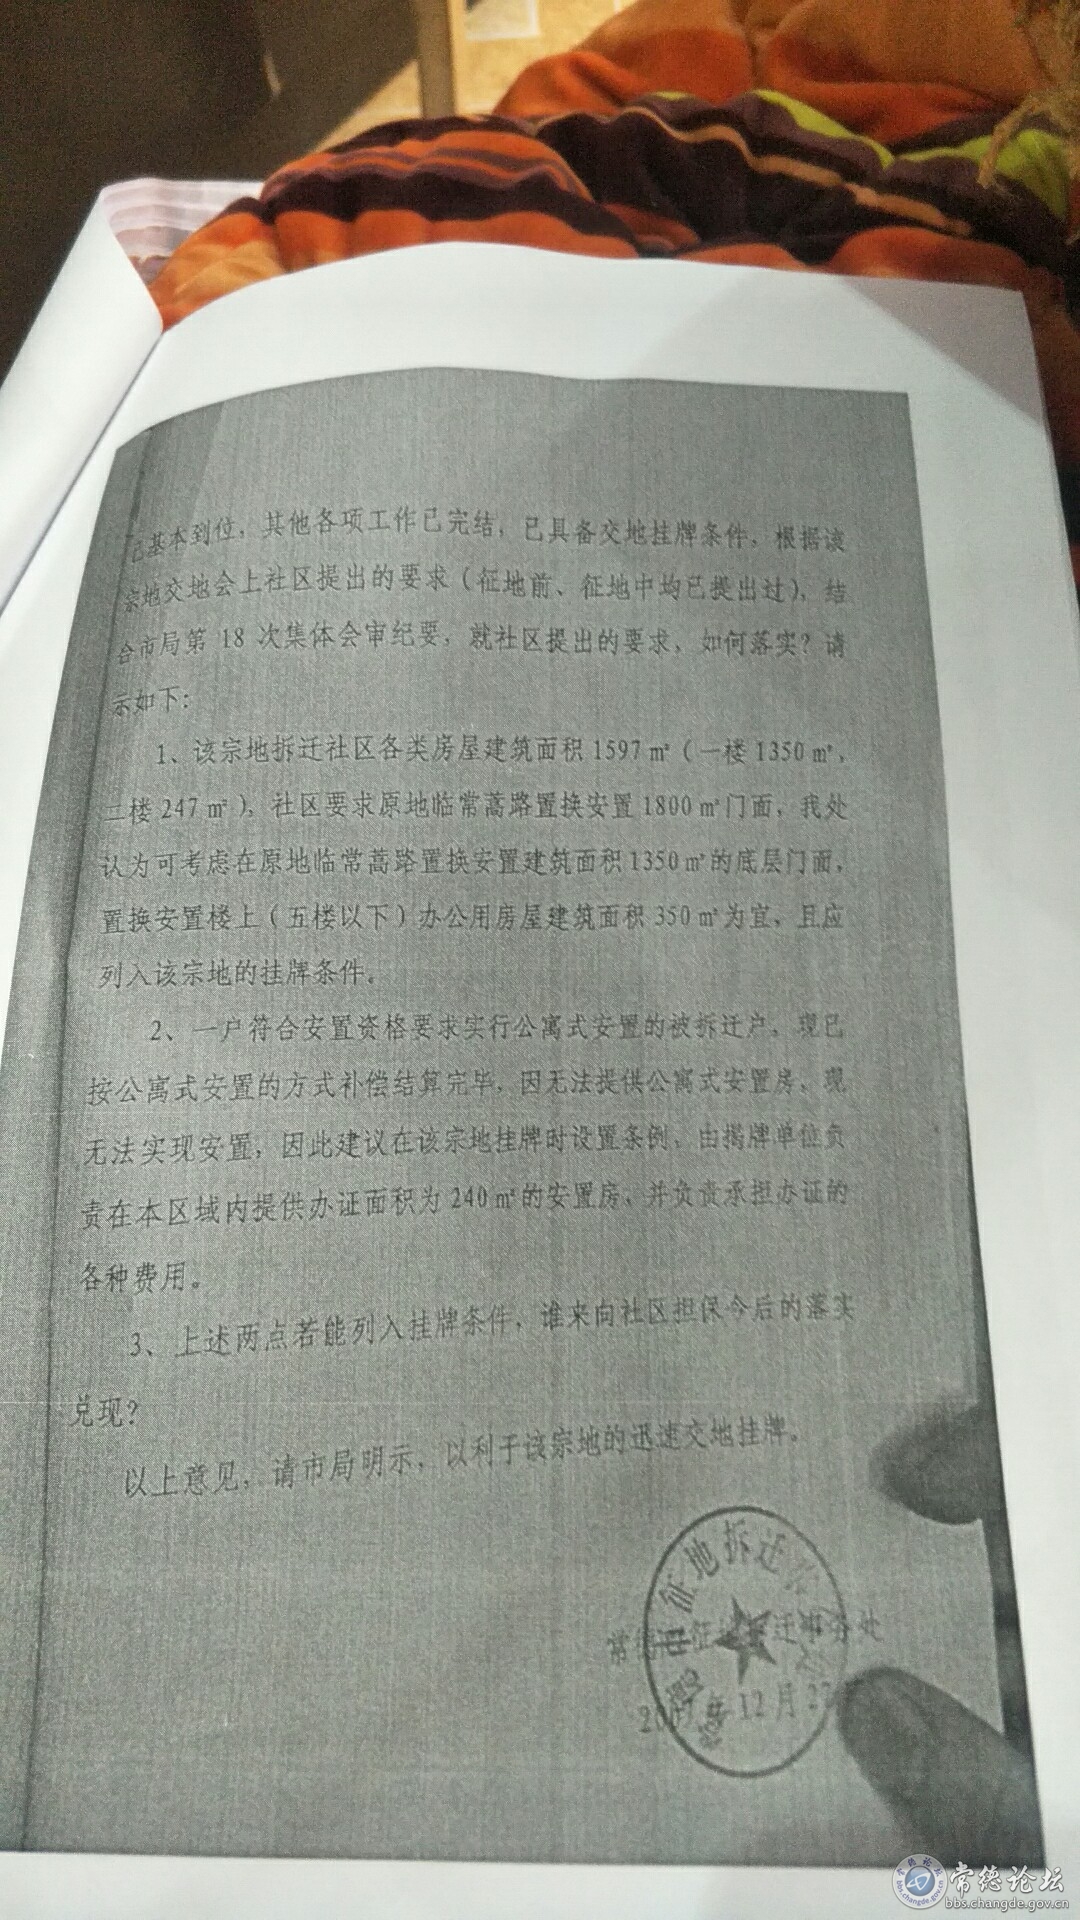 已基本到位，其他各项工作已完结，已具备交地挂牌条件，根据该
宗地交地会上社区提出的要求（征地前、征地中均已提出过），结
合市局第 18 次集体会审纪要，就社区提出的要求，如何落实？请
示如下：
1、该宗地拆迁社区各类房屋建筑面积 1597 ㎡（一楼 1350 ㎡，
二楼 247 ㎡），社区要求原地临常蒿路置换安置 1800 ㎡门面，我处
认为可考虑在原地临常蒿路置换安置建筑面积 1350 ㎡的底层门面，
置换安置楼上（五楼以下）办公用房屋建筑面积 350 ㎡为宜，且应
列入该宗地的挂牌条件。
2、一户符合安置资格要求实行公寓式安置的被拆迁户，现已
按公寓式安置的方式补偿结算完毕，因无法提供公寓式安置房，现
无法实现安置，因此建议在该宗地挂牌时设置条例，由揭牌单位负
责在本区域内提供办证面积为 240 ㎡的安置房，并负责承担办证的
各种费用。
3、上述两点若能列入挂牌条件，谁来向社区担保今后的落实
兑现？
以上意见，请市局明示，以利于该宗地的迅速交地挂牌。
常德市征地拆迁事务处
年 12 月
常德市征地拆迁
常德论坛
bbs.changde.gov.cn